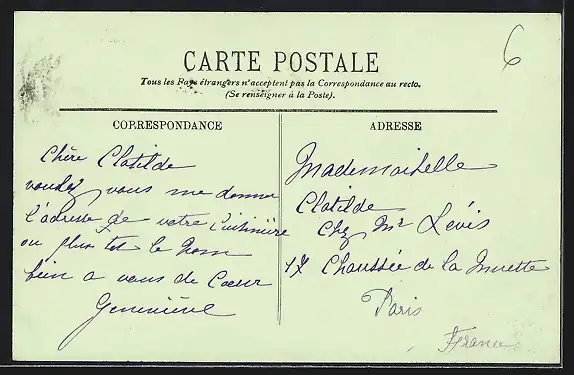 6
CARTE POSTALE
Tous les Pays étrangers n'acceptent pas la Correspondance au recto.
(Se renseigner à la Poste).
CORRESPONDANCE
Chère Clotilde
voudez vous me donner
l'adresse de votre Cuisinière
ou plus tot le Nom
bien a vous de Coeur
Geneviève
ADRESSE
Mademoiselle
Clotilde
Chez Mr Lévis
17 Chaussée de la Muette
Paris
France